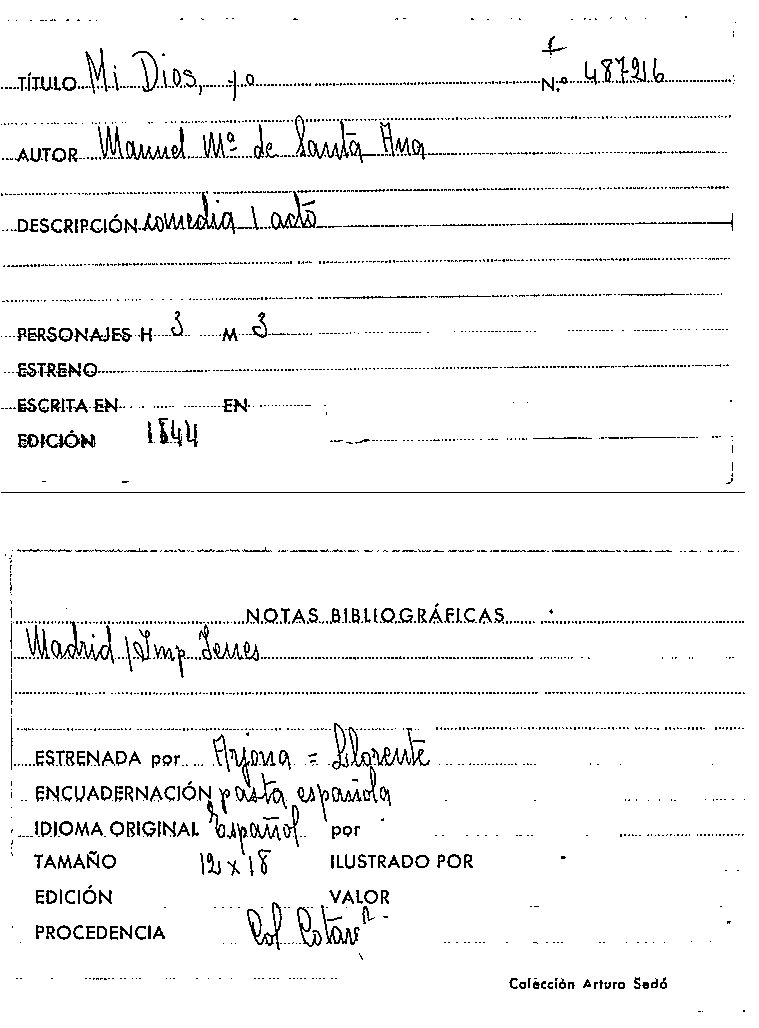 TÍTULO Mi Dios, yo N.º 487216
AUTOR Manuel Mª de Santa Ana
DESCRIPCIÓN comedia 1 acto
PERSONAJES H 3 M 3
ESTRENO
ESCRITA EN EN
EDICIÓN 1844
NOTAS BIBLIOGRÁFICAS
Madrid / Imp
ESTRENADA por Arjona = Llorente
ENCUADERNACIÓN pasta española
IDIOMA ORIGINAL Español por
TAMAÑO 12 x 18 ILUSTRADO POR
EDICIÓN VALOR
PROCEDENCIA Col
Colección Arturo Sedó